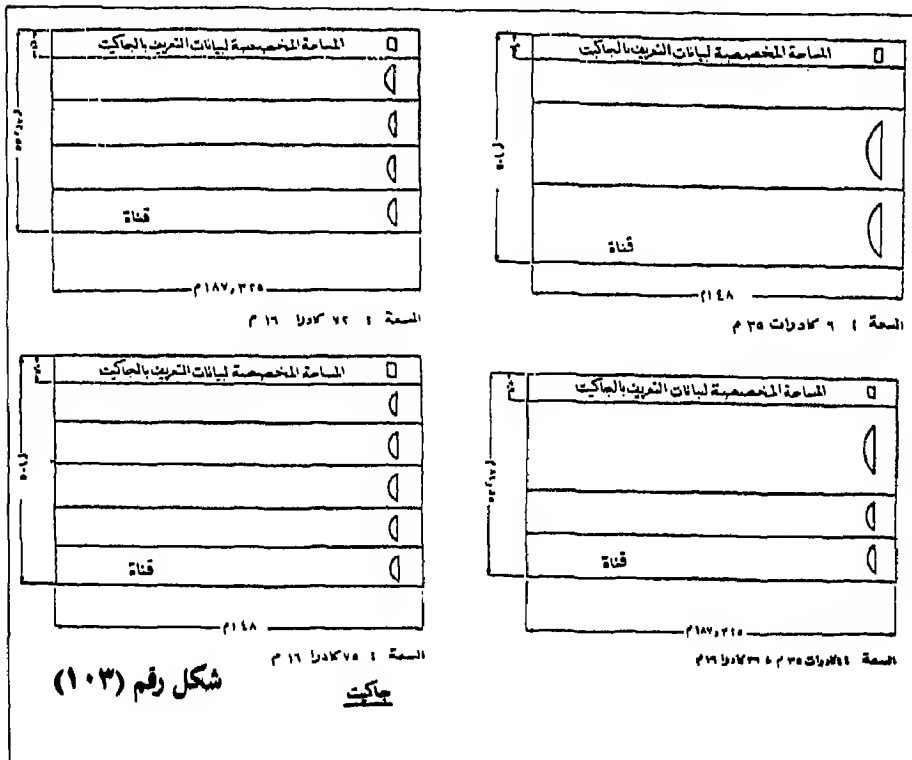 المساحة المخصصة لبيانات التعريف بالجاكيت
قناة
١٤٨م
السعة : ٩ كادرات ٣٥ م
المساحة المخصصة لبيانات التعريف بالجاكيت
قناة
١٨٧,٣٢٥م
السعة : ٧٢ كادرا ١٦ م
المساحة المخصصة لبيانات التعريف بالجاكيت
قناة
١٨٧,٣٢٥م
المساحة المخصصة لبيانات التعريف بالجاكيت
قناة
١٤٨م
السعة : ٧٥ كادرا ١٦ م
جاكيت
شكل رقم (١٠٣)